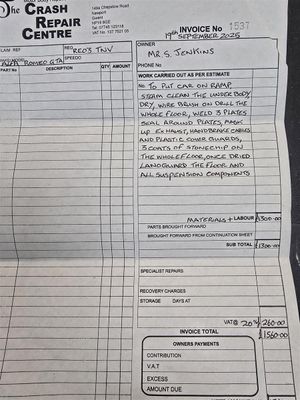 The CRASH
REPAIR
CENTRE
149a Chepstow Road
Newport
Gwent
NP19 8GE
INVOICE No 1537
19th SEPTEMBER 2025
CLAIM REF
REG REO3 TNV
SPEEDO
ALFA ROMEO GTA
OWNER
MR. S. JENKINS
PHONE No
Part No DESCRIPTION QTY AMOUNT
WORK CARRIED OUT AS PER ESTIMATE
TO PUT CAR ON RAMP,
STEAM CLEAN THE UNDERBODY
DRY, WIRE BRUSH ON DRILL THE
WHOLE FLOOR, WELD 3 PLATES
SEAL AROUND PLATES, MASK
UP EXHAUST, HANDBRAKE CABLES
AND PLASTIC COVER GUARDS
3 COATS OF STONECHIP ON
THE WHOLE FLOOR, ONCE DRIED
LANOGUARD THE FLOOR AND
ALL SUSPENSION COMPONENTS
MATERIALS + LABOUR £1300=00
PARTS BROUGHT FORWARD
BROUGHT FORWARD FROM CONTINUATION SHEET
SUB TOTAL £1300=00
SPECIALIST REPAIRS
RECOVERY CHARGES
STORAGE DAYS AT
VAT@ 20% £260=00
INVOICE TOTAL £1560=00
OWNERS PAYMENTS
CONTRIBUTION
V.A.T
EXCESS
AMOUNT DUE